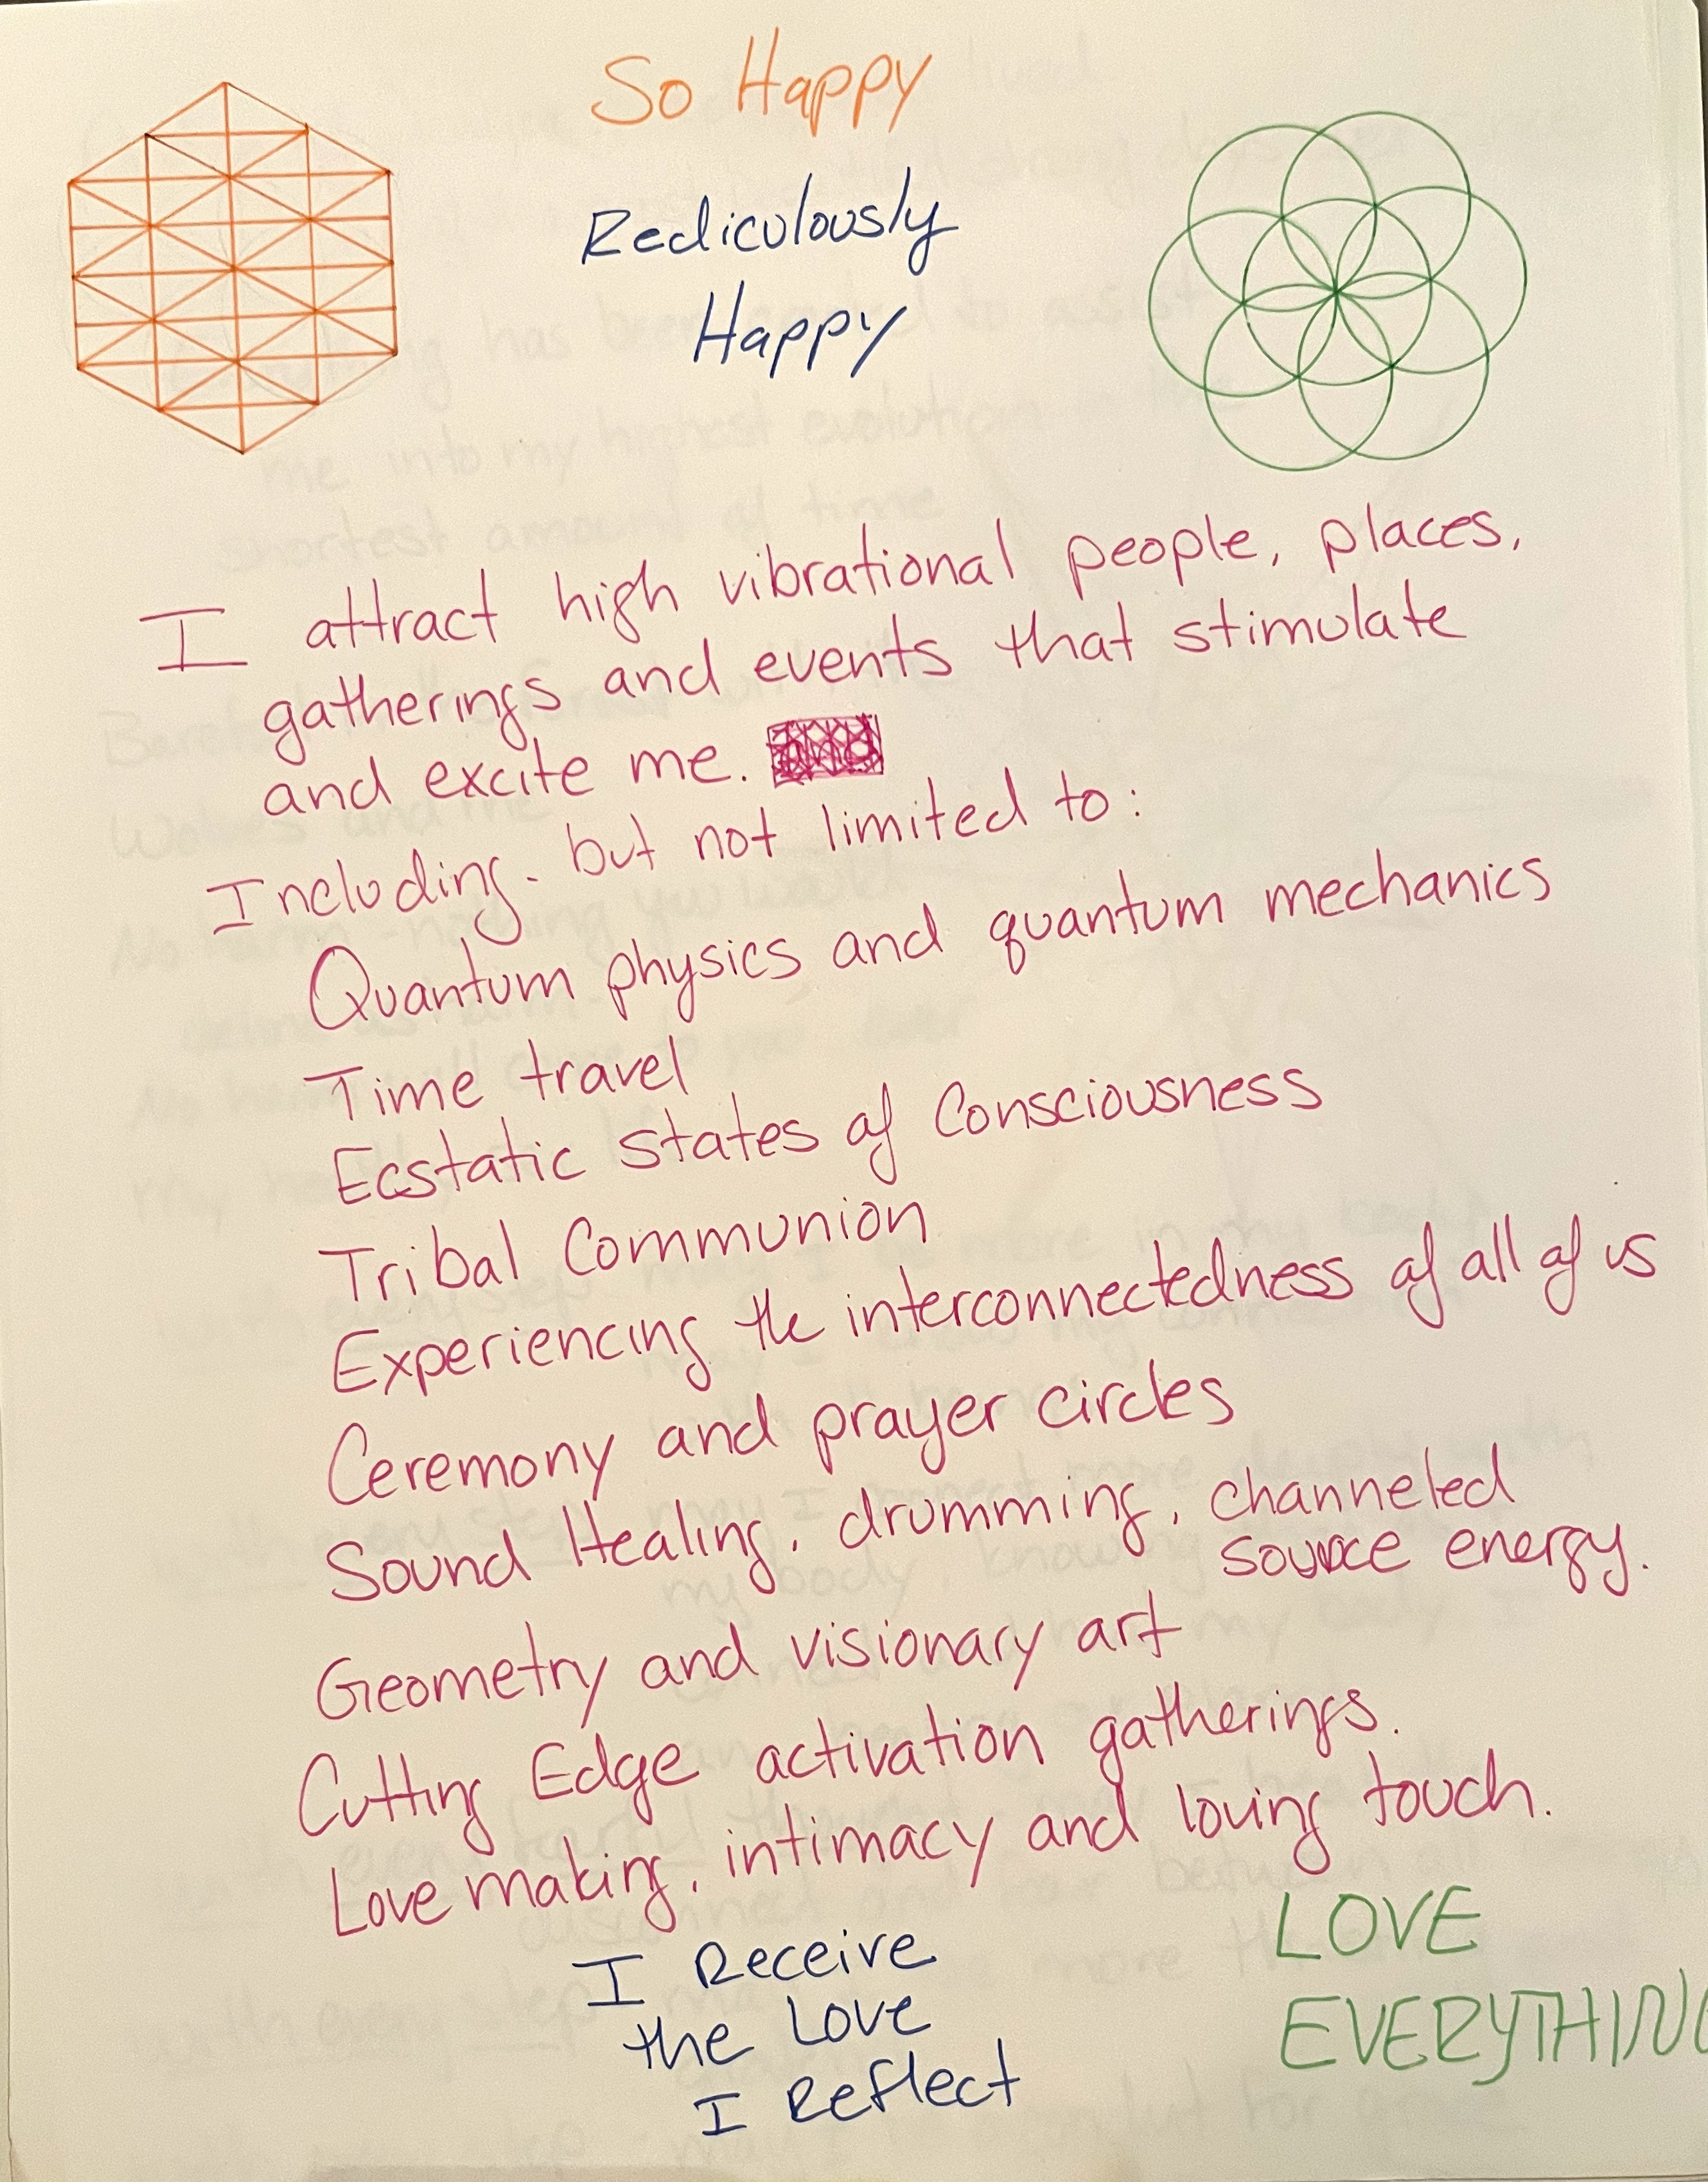 So Happy
Rediculously
Happy
I attract high vibrational people, places,
gatherings and events that stimulate
and excite me.
Including, but not limited to:
Quantum physics and quantum mechanics
Time travel
Ecstatic States of Consciousness
Tribal Communion
Experiencing the interconnectedness of all of us
Ceremony and prayer circles
Sound Healing, drumming, channeled
source energy.
Geometry and visionary art
Cutting Edge activation gatherings.
Love making, intimacy and loving touch.
I Receive
the Love
I Reflect
LOVE
EVERYTHING